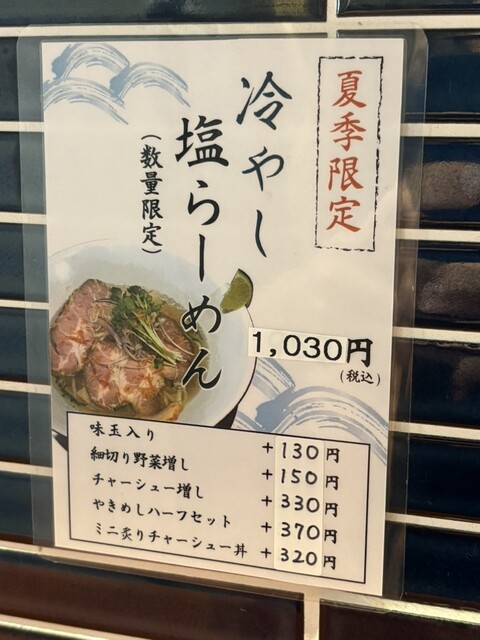 夏季限定
冷やし
塩らーめん
（数量限定）
1,030円
(税込)
味玉入り +130円
細切り野菜増し +150円
チャーシュー増し +330円
やきめしハーフセット +370円
ミニ炙りチャーシュー丼 +320円